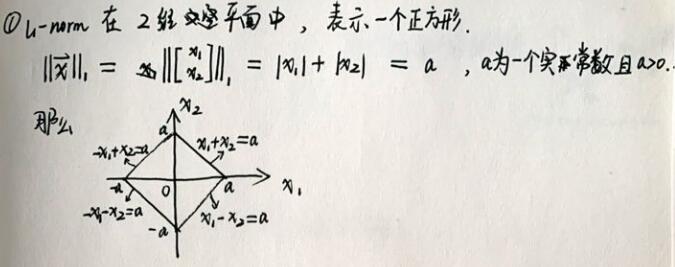 ① L1-norm 在 2维平面中，表示一个正方形.
||x⃗||₁ = ||[x₁ x₂]||₁ = |x₁| + |x₂| = a ，a为一个实常数且a>0.
那么
x₂
a
-x₁+x₂=a x₁+x₂=a
-a 0 a x₁
-x₁-x₂=a x₁-x₂=a
-a